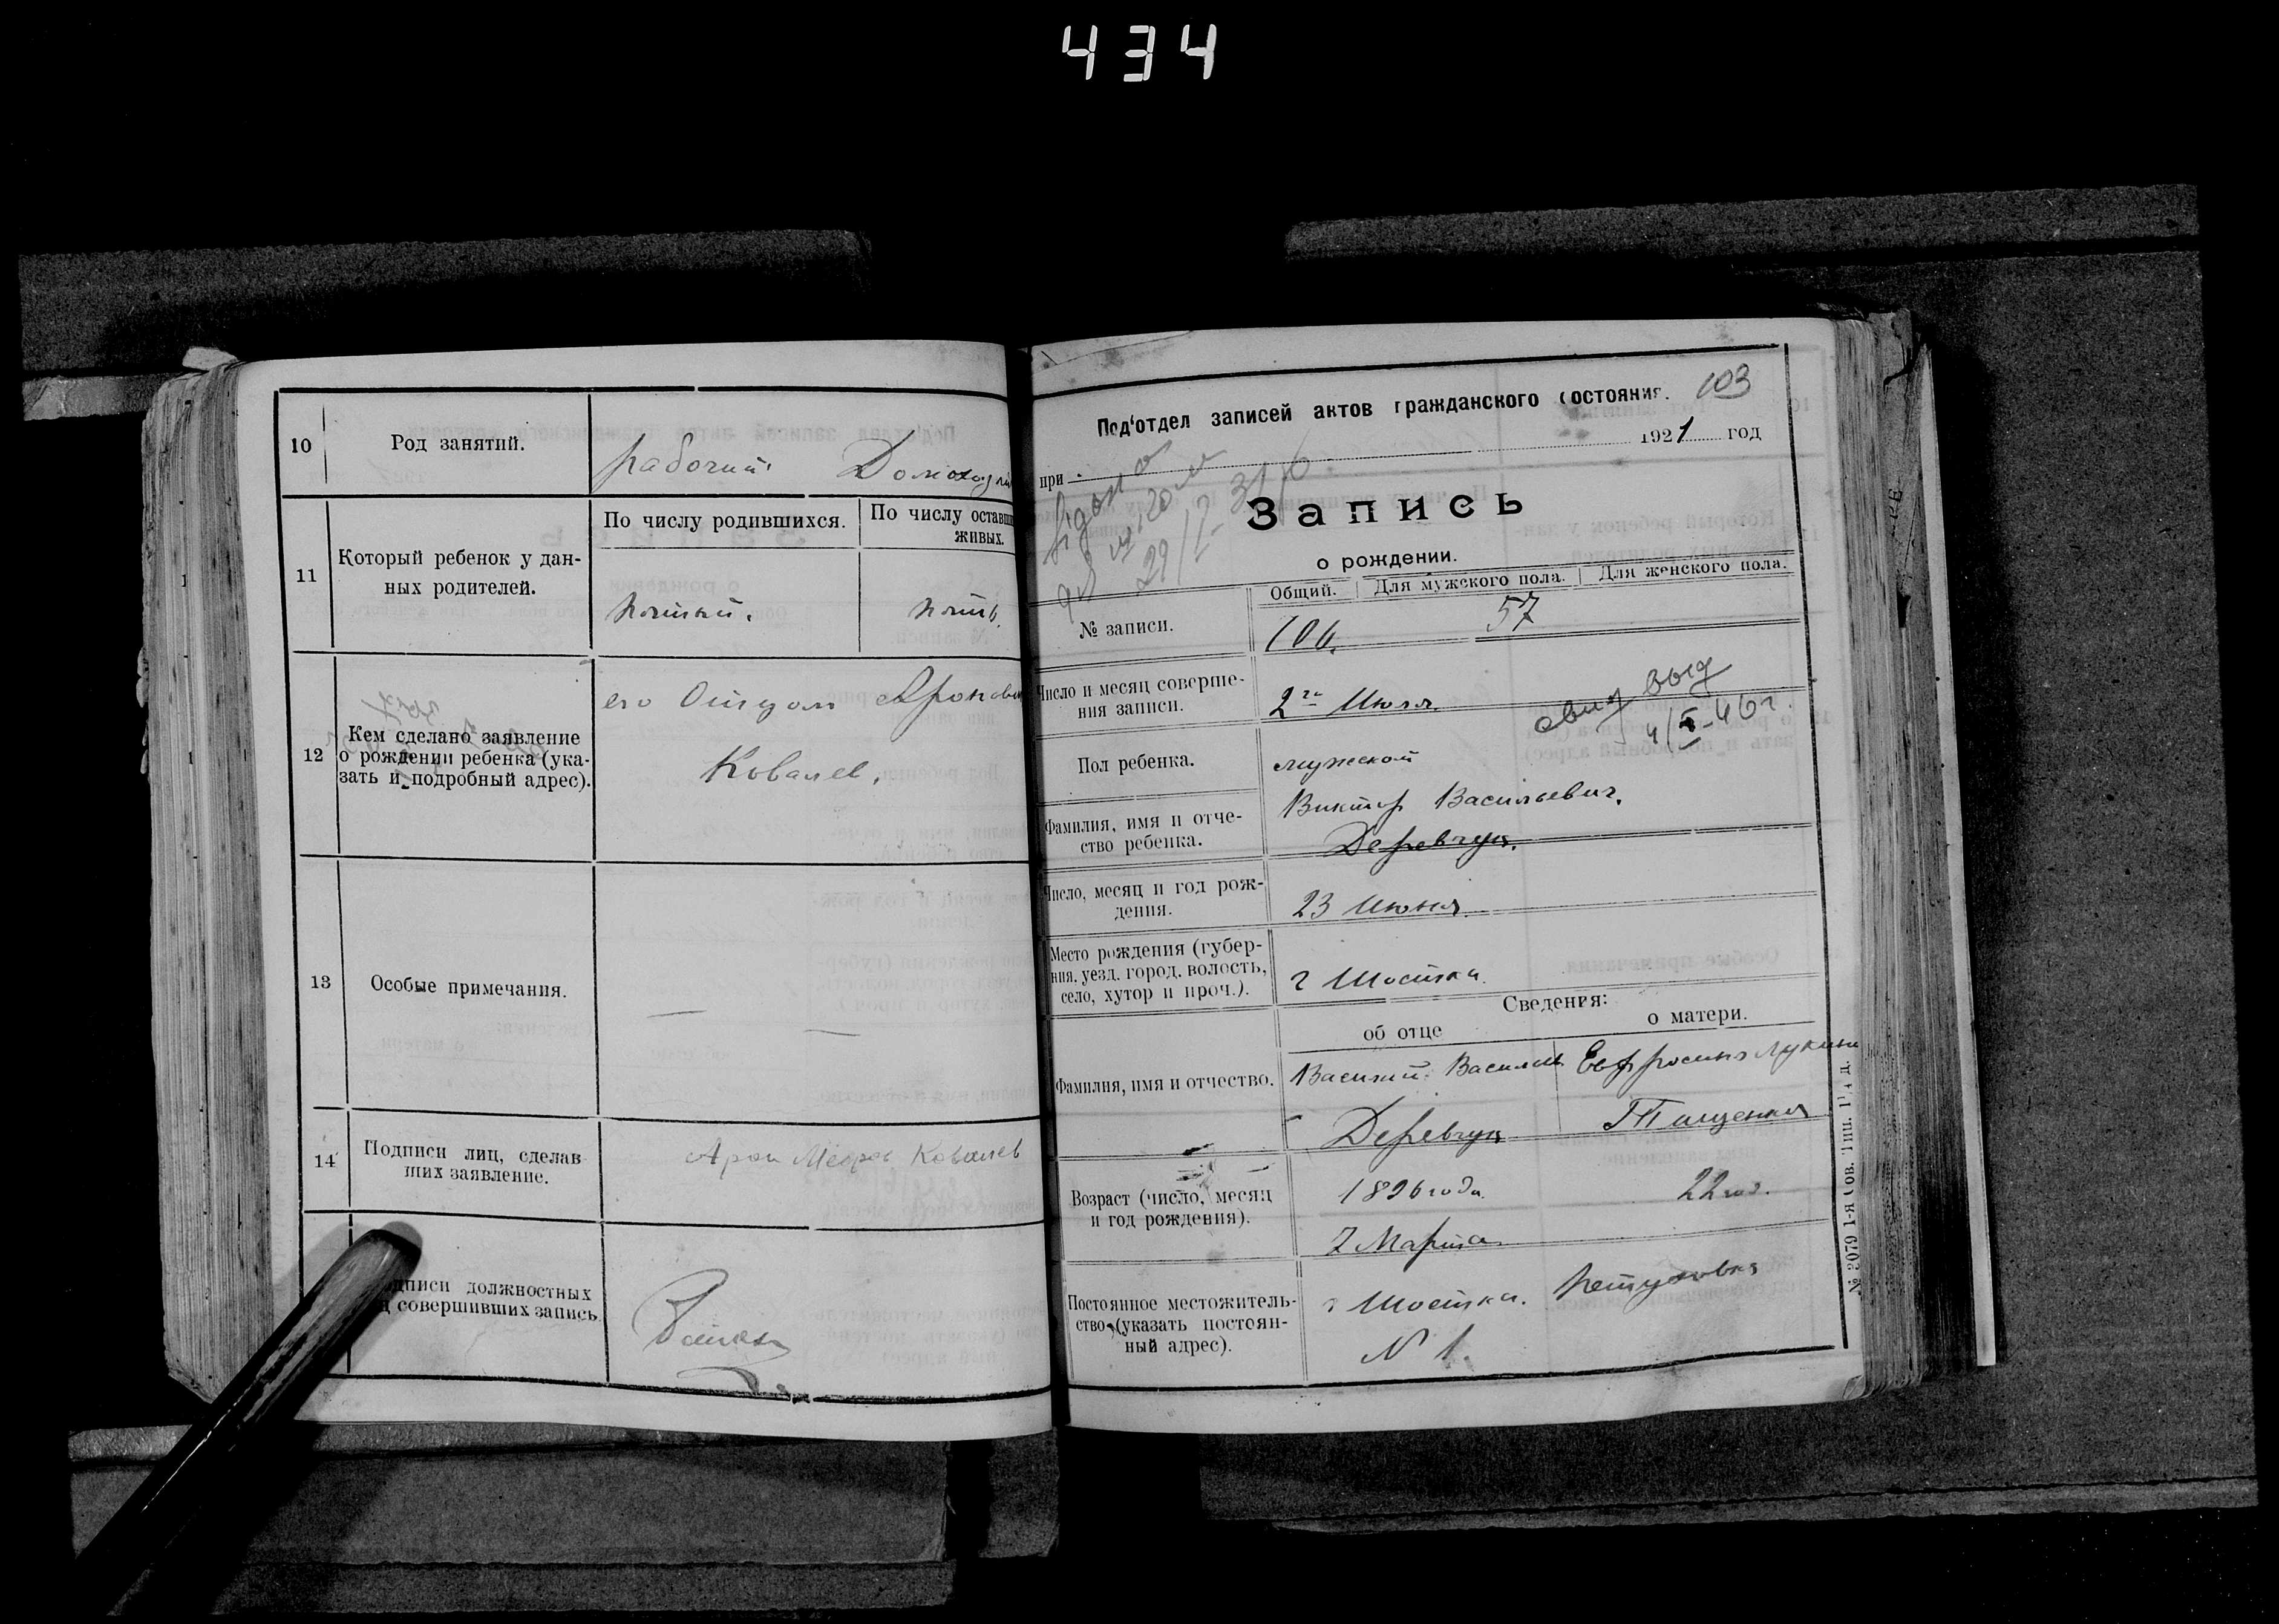 434
10 Род занятий. рабочий Домохозяй
11 Который ребенок у дан-
ных родителей.
По числу родившихся. По числу оставши
живых.
пятый. пять.
12 Кем сделано заявление
о рождении ребенка (ука-
зать и подробный адрес).
его Отцом Арон
Ковалев.
13 Особые примечания. — —
14 Подписи лиц, сделав
ших заявление.
Арон Ковалев
дписи должностных
совершивших запись.
103
Под'отдел записей актов гражданского состояния.
при 1921 год
Запись
о рождении.
Общий. Для мужского пола. Для женского пола.
№ записи. 106. 57
Число и месяц соверше-
ния записи.
2го Июля.
свид выд
4/V-46г.
Пол ребенка. мужской
Фамилия, имя и отче-
ство ребенка.
Виктор Васильевич.
Деревчук.
Число, месяц и год рож-
дения.
23 Июня
Место рождения (губер-
ния, уезд, город, волость,
село, хутор и проч.).
г Шостка.
Сведения:
об отце о матери.
Фамилия, имя и отчество. Василий Васильев Евфросиня Лукин
Деревчук Тищенко
Возраст (число, месяц
и год рождения).
1896 года. 22 год.
7 Марта
Постоянное местожитель-
ство (указать постоян-
ный адрес).
г Шостка. Петуховка
N 1.
№ 2079 1-я Сов. Тип.